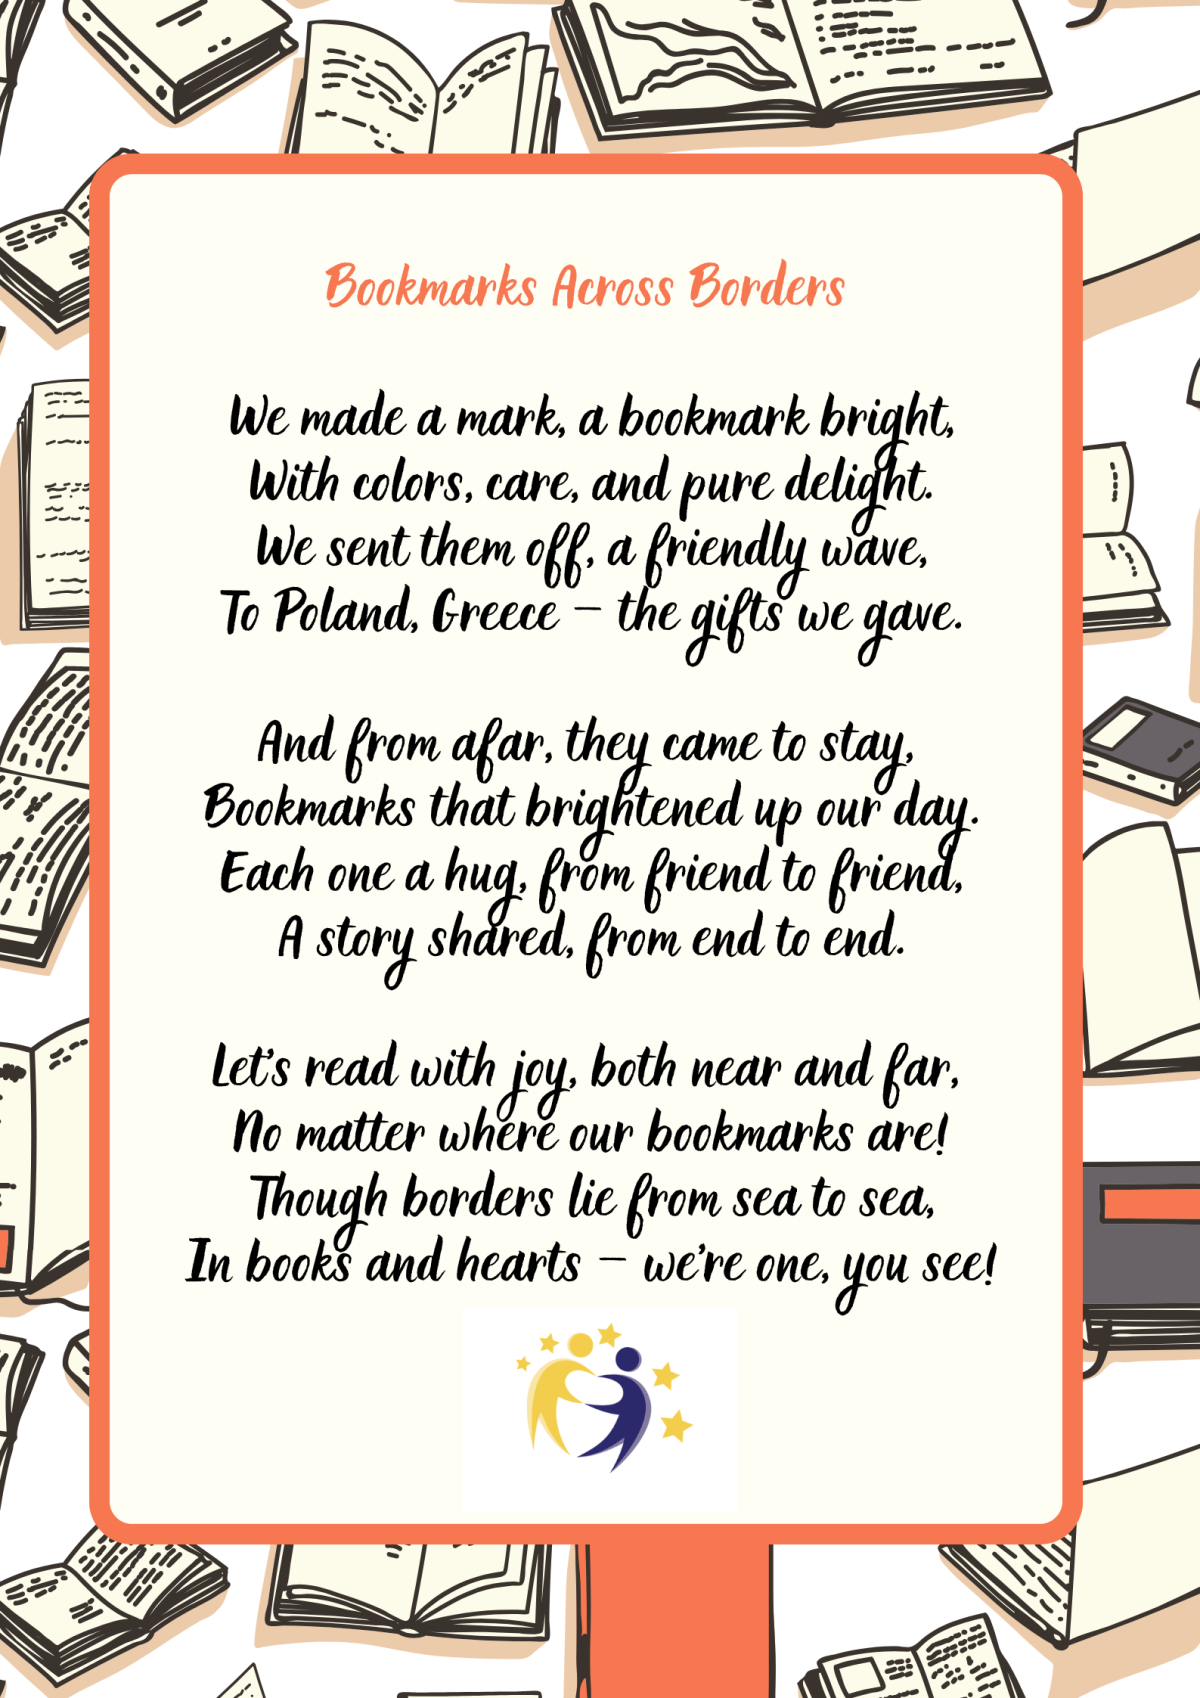 Bookmarks Across Borders
We made a mark, a bookmark bright,
With colors, care, and pure delight.
We sent them off, a friendly wave,
To Poland, Greece – the gifts we gave.
And from afar, they came to stay,
Bookmarks that brightened up our day.
Each one a hug, from friend to friend,
A story shared, from end to end.
Let's read with joy, both near and far,
No matter where our bookmarks are!
Though borders lie from sea to sea,
In books and hearts – we're one, you see!